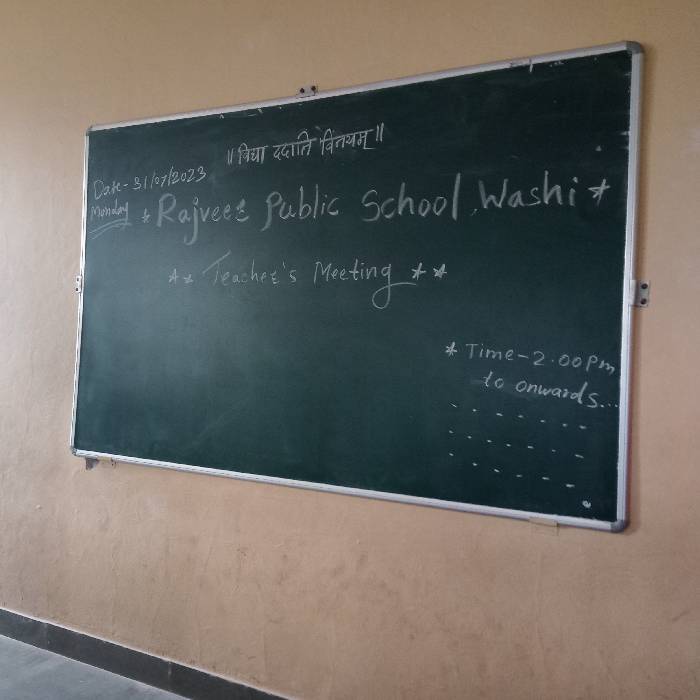 ॥ विद्या ददाति विनयम् ॥
Date - 31/07/2023
Monday
* Rajveer Public School, Washi *
** Teacher's Meeting **
* Time - 2.00 Pm
to onwards...